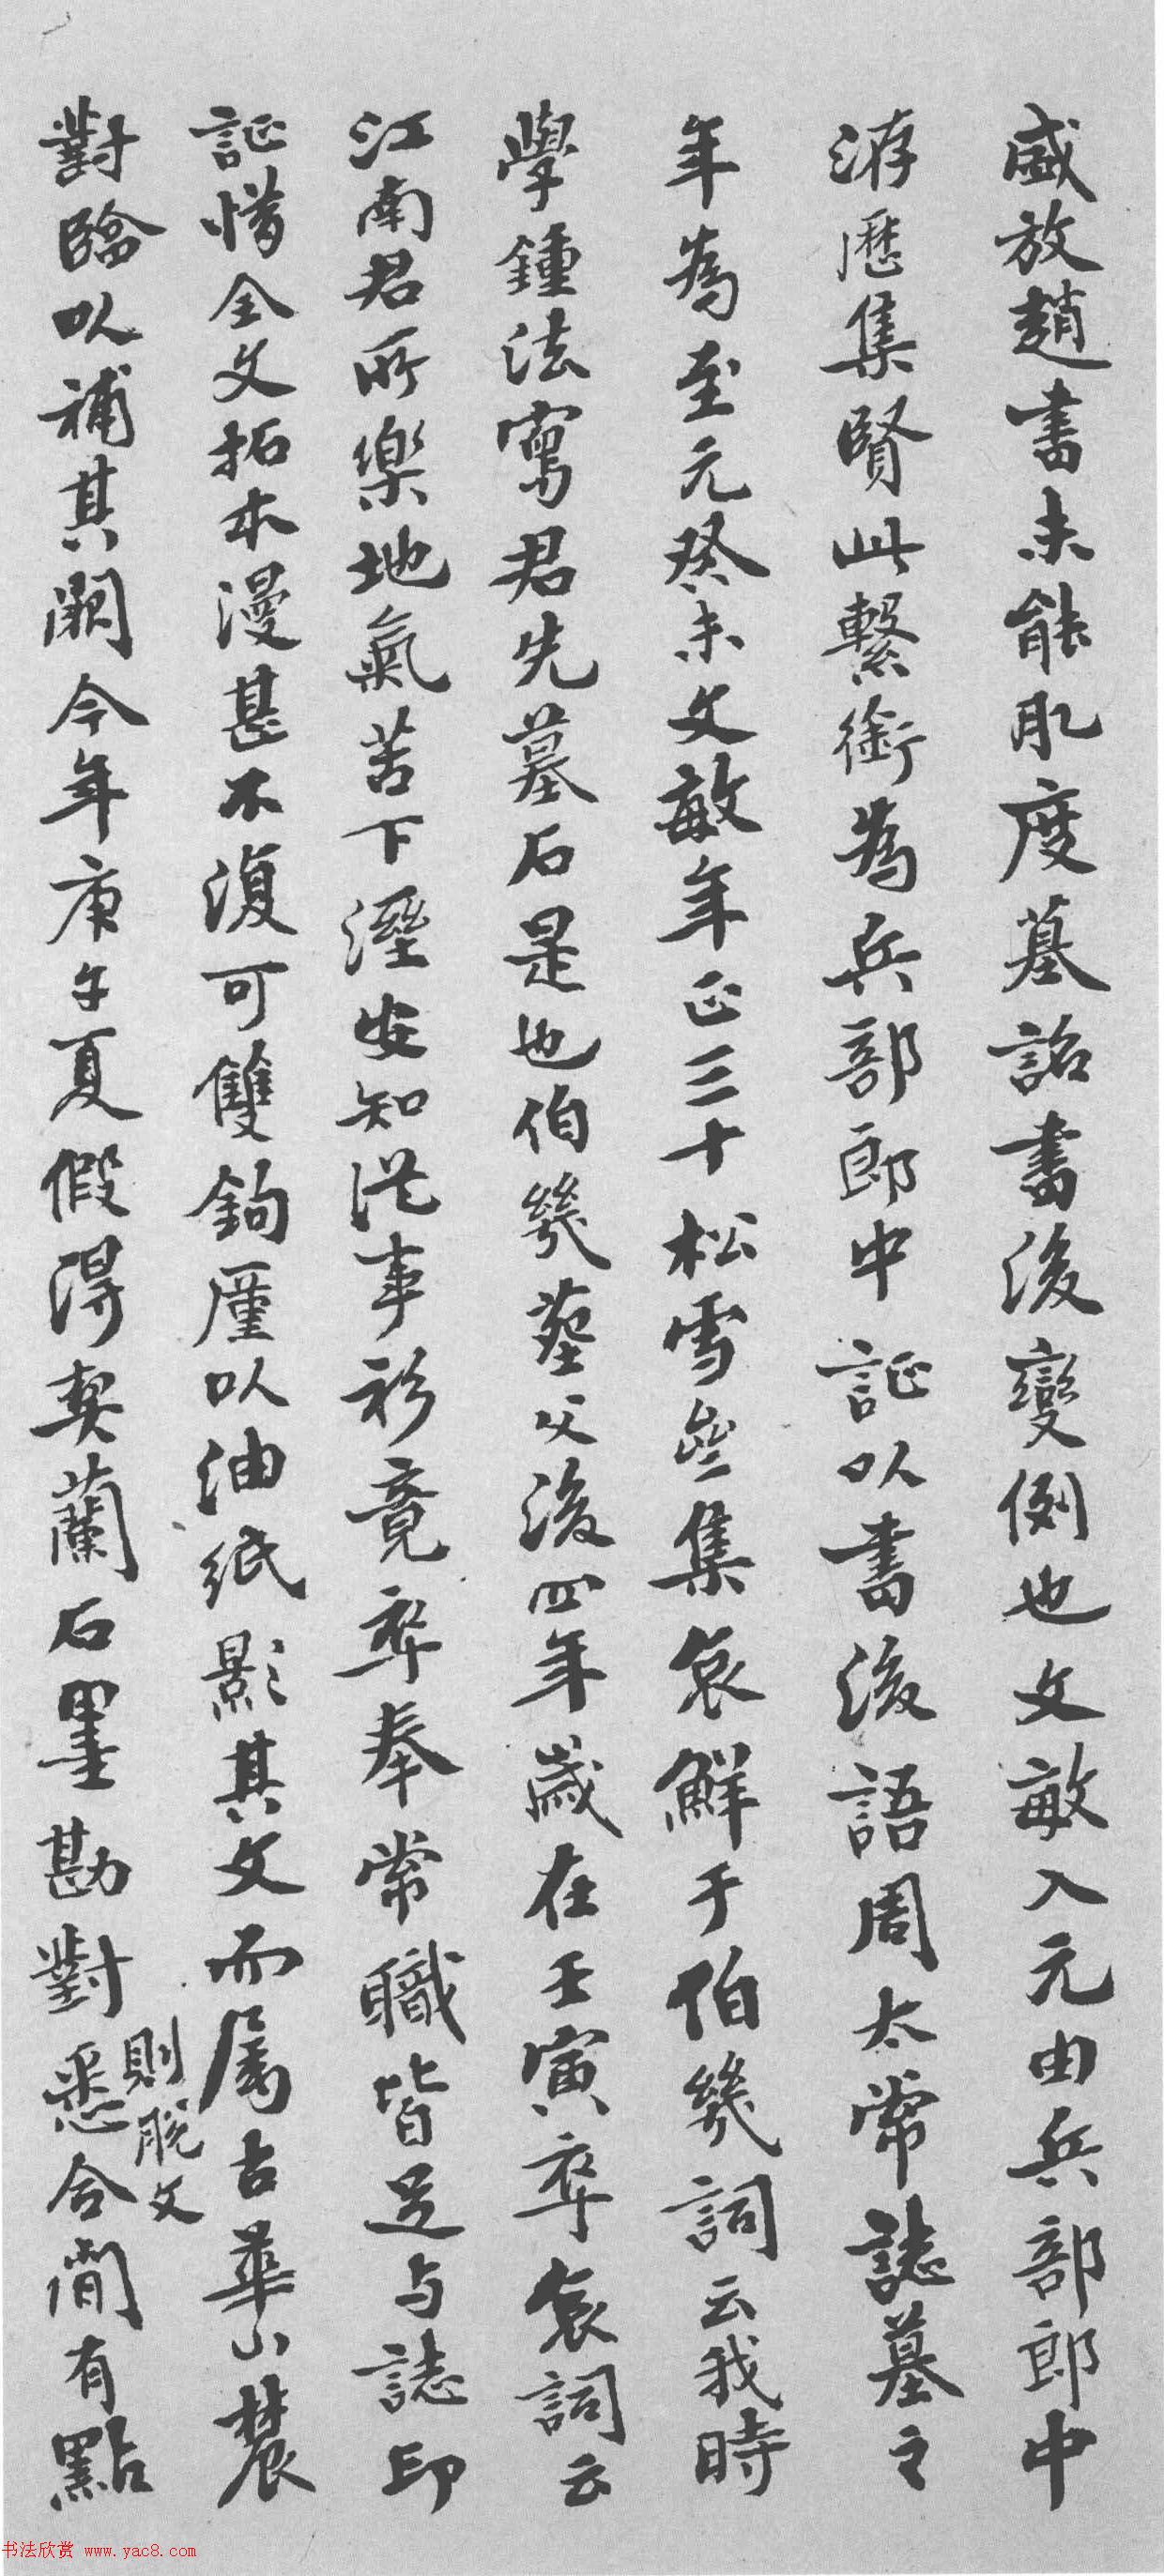 盛放趙書未能肌度墓誌書後變例也文敏入元由兵部郎中
游歷集賢此繫銜為兵部郎中証以書後語周太常誌墓之
年為至元癸未文敏年正三十松雪集哀鮮于伯幾詞云我時
學鍾法寫君先墓石是也伯幾葬父後四年歲在壬寅卒哀詞云
江南君所樂地氣苦下溼安知從事衫竟卒奉常職皆足与誌印
証惜全文拓本漫甚不復可雙鉤厪以油紙影其文而属古華山農
對臨以補其闕今年庚午夏假得契蘭石墨勘對悉合間有點
則脫文
书法欣赏 www.yac8.com